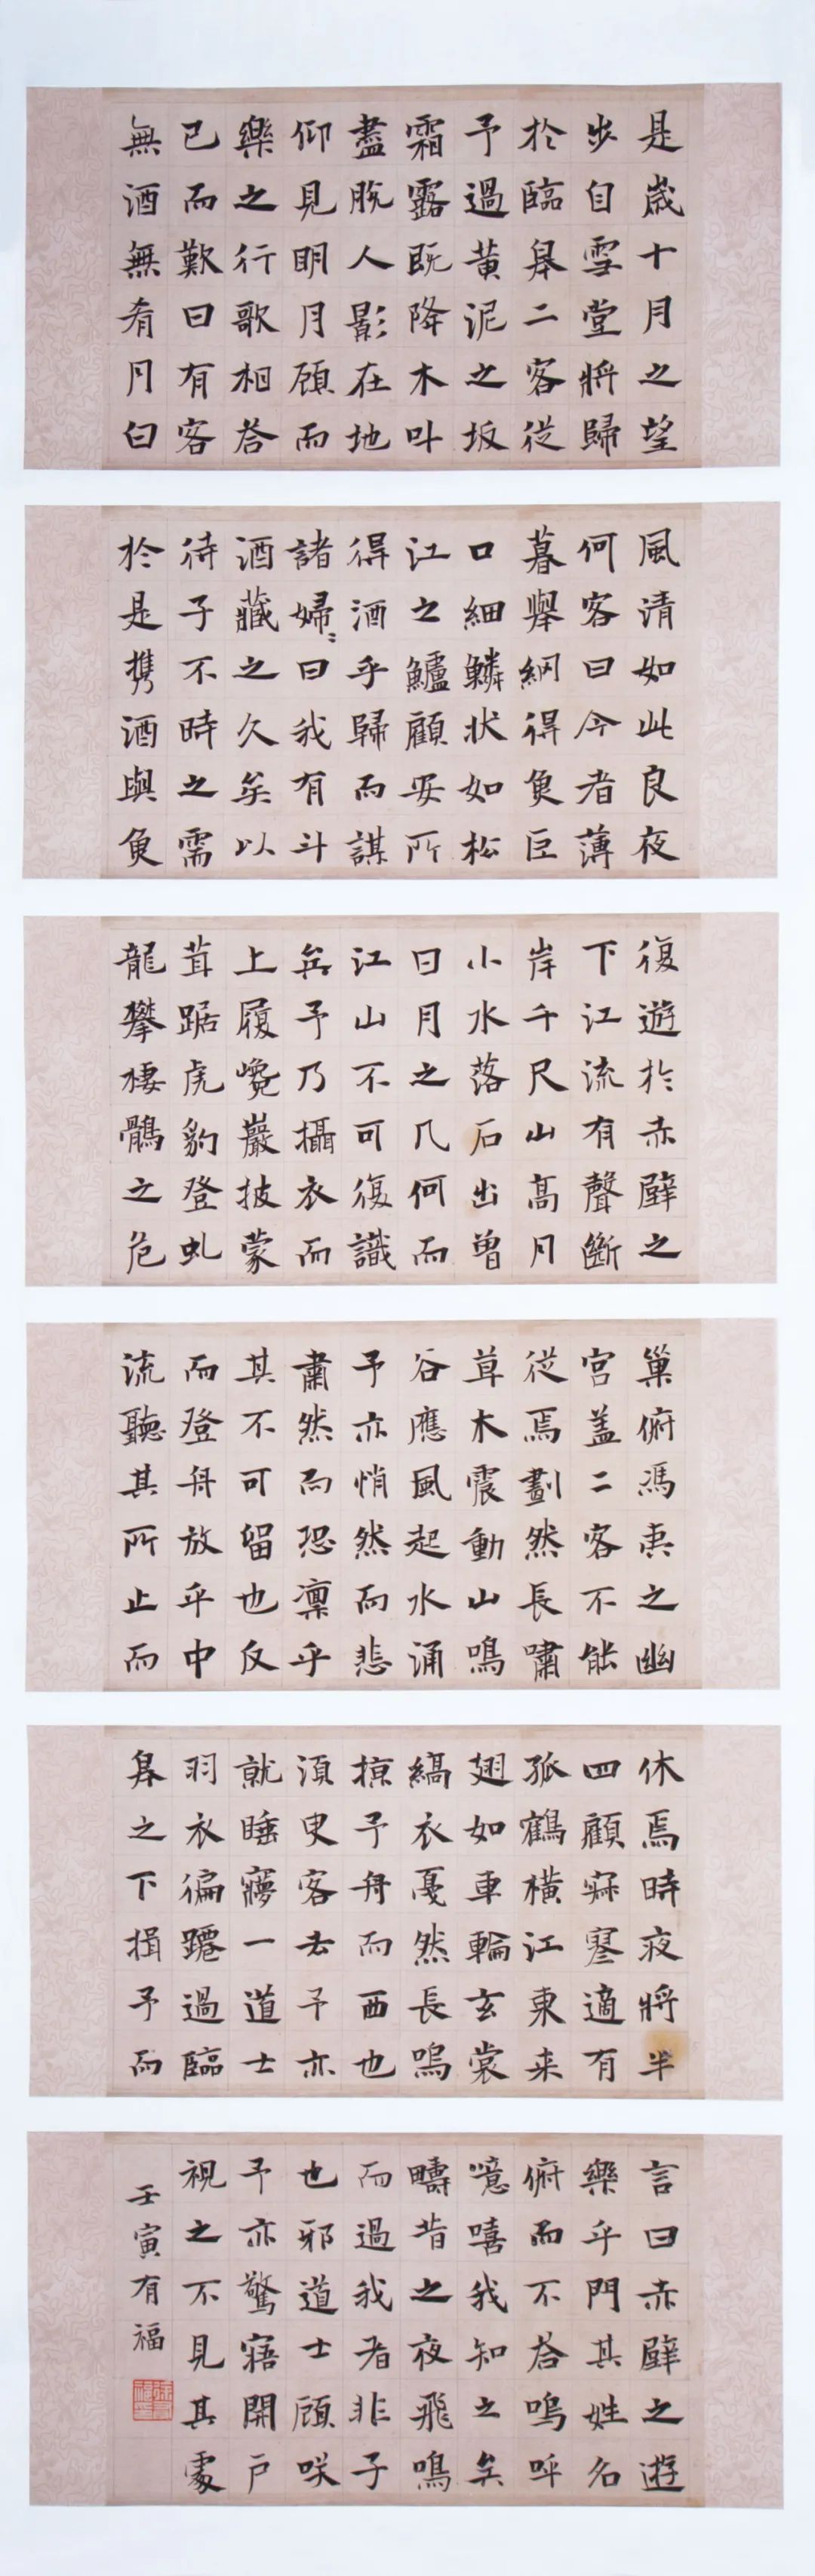 是歲十月之望
步自雪堂將歸
於臨皐二客從
予過黃泥之坂
霜露既降木叶
盡脫人影在地
仰見明月顧而
樂之行歌相荅
已而歎曰有客
無酒無肴月白
風清如此良夜
何客曰今者薄
暮舉網得魚巨
口細鱗狀如松
江之鱸顧安所
得酒乎歸而謀
諸婦〻曰我有斗
酒藏之久矣以
待子不時之需
於是携酒與魚
復遊於赤壁之
下江流有聲斷
岸千尺山高月
小水落石出曾
日月之几何而
江山不可復識
矣予乃攝衣而
上履巉巖披蒙
茸踞虎豹登虬
龍攀棲鶻之危
巢俯馮夷之幽
宮盖二客不能
從焉劃然長嘯
草木震動山鳴
谷應風起水涌
予亦悄然而悲
肅然而恐凛乎
其不可留也反
而登舟放乎中
流聽其所止而
休焉時夜將半
四顧寂寥適有
孤鶴橫江東来
翅如車輪玄裳
縞衣戛然長鳴
掠予舟而西也
須臾客去予亦
就睡夢一道士
羽衣徧躚過臨
皐之下揖予而
言曰赤壁之遊
樂乎門其姓名
俯而不荅嗚呼
噫嘻我知之矣
疇昔之夜飛鳴
而過我者非子
也邪道士顧咲
予亦驚寤開戶
視之不見其處
壬寅有福